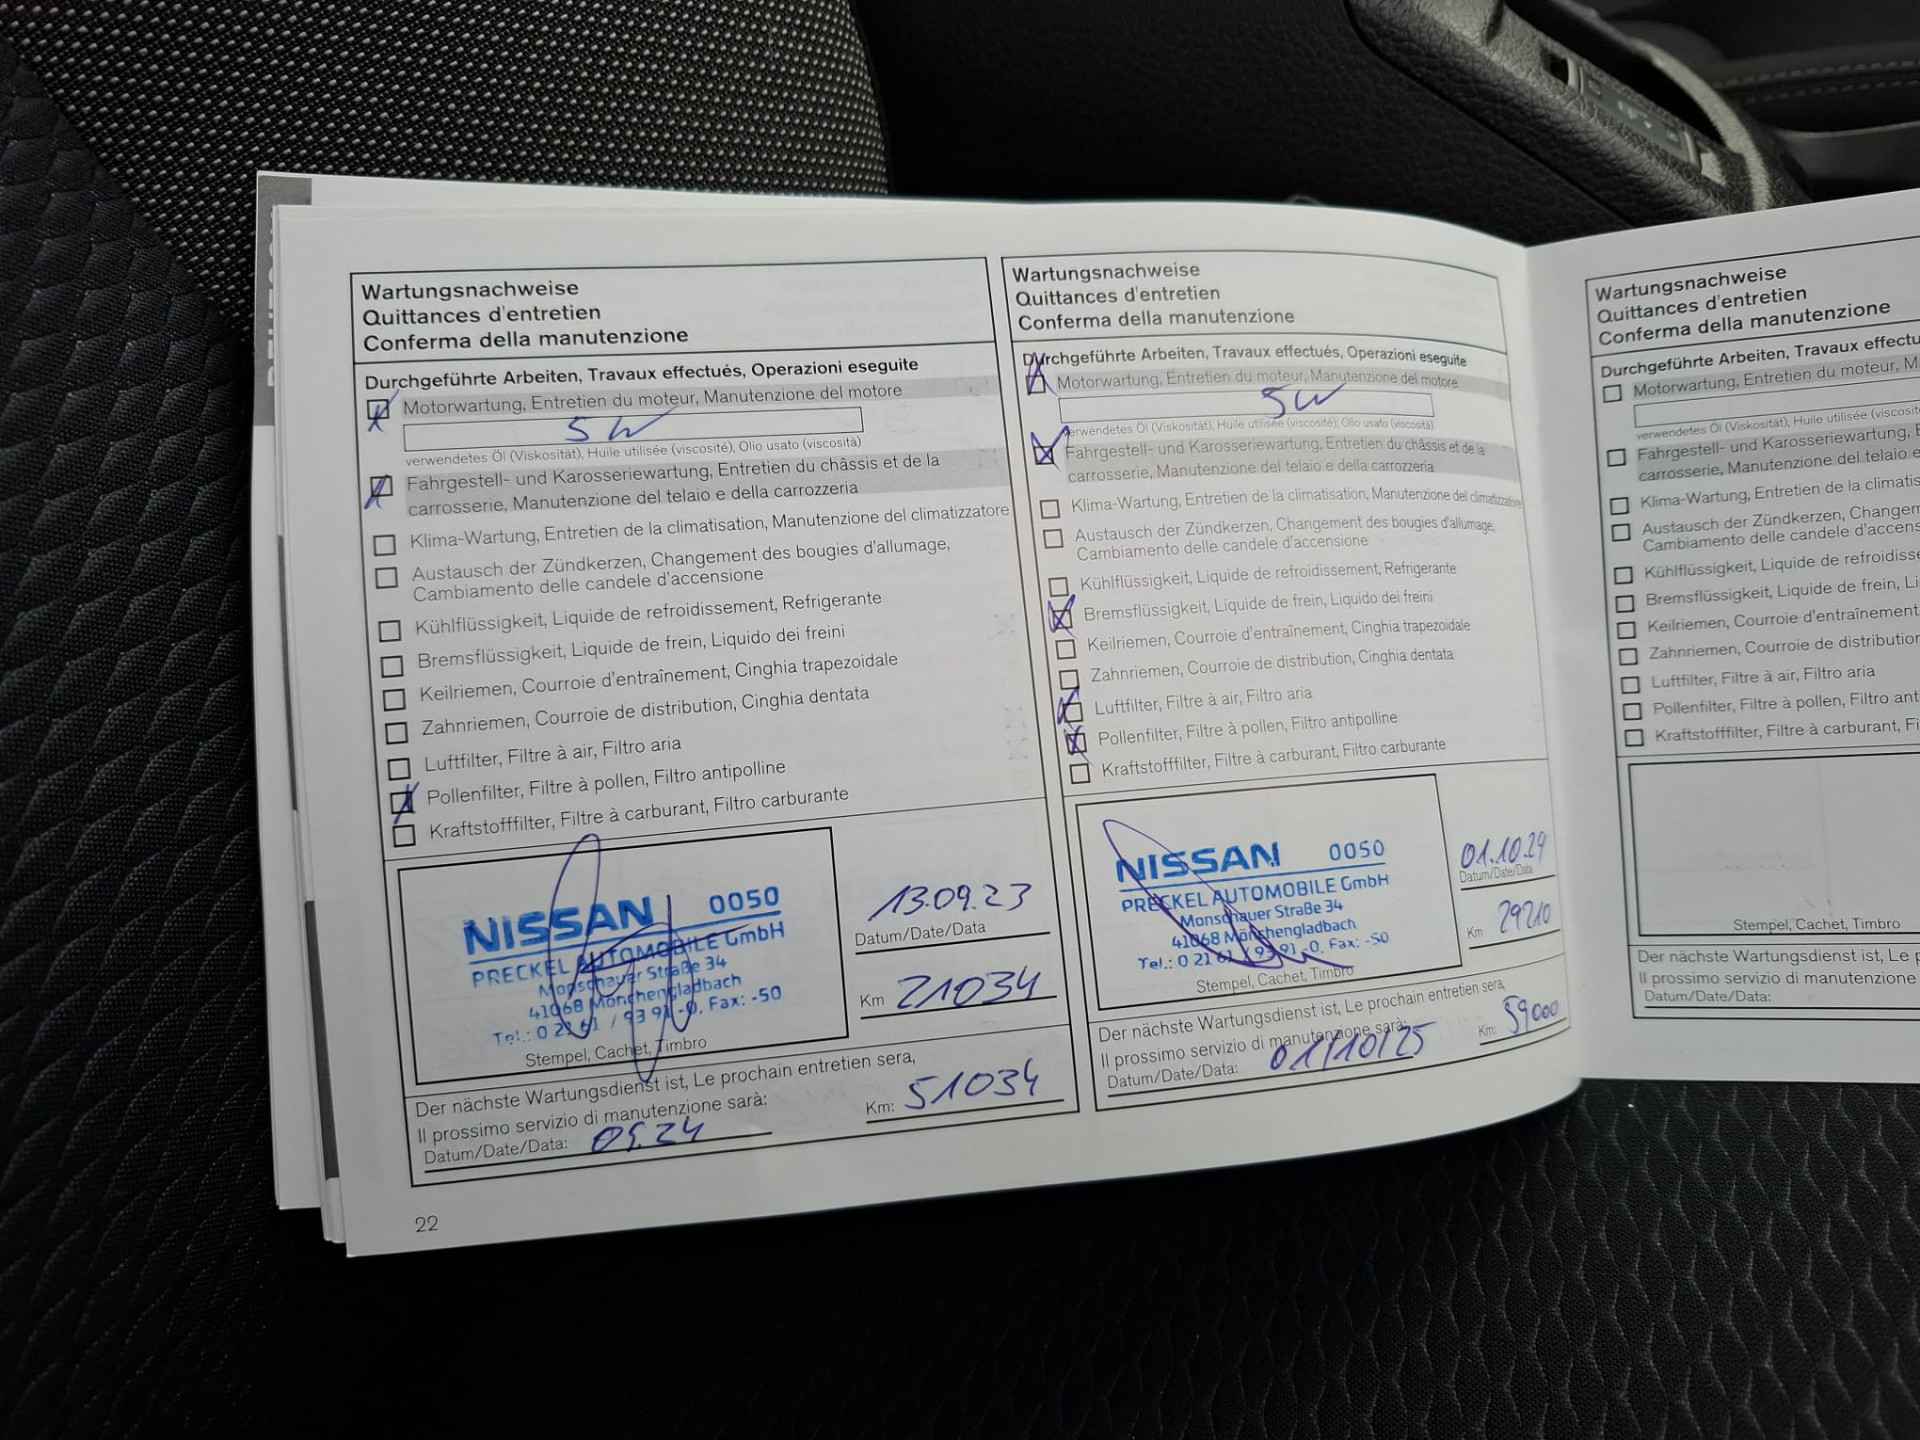 Wartungsnachweise
Quittances d'entretien
Conferma della manutenzione
Durchgeführte Arbeiten, Travaux effectués, Operazioni eseguite
Motorwartung, Entretien du moteur, Manutenzione del motore
5W
verwendetes Öl (Viskosität), Huile utilisée (viscosité), Olio usato (viscosità)
Fahrgestell- und Karosseriewartung, Entretien du châssis et de la
carrosserie, Manutenzione del telaio e della carrozzeria
Klima-Wartung, Entretien de la climatisation, Manutenzione del climatizzatore
Austausch der Zündkerzen, Changement des bougies d'allumage,
Cambiamento delle candele d'accensione
Kühlflüssigkeit, Liquide de refroidissement, Refrigerante
Bremsflüssigkeit, Liquide de frein, Liquido dei freini
Keilriemen, Courroie d'entraînement, Cinghia trapezoidale
Zahnriemen, Courroie de distribution, Cinghia dentata
Luftfilter, Filtre à air, Filtro aria
Pollenfilter, Filtre à pollen, Filtro antipolline
Kraftstofffilter, Filtre à carburant, Filtro carburante
NISSAN 0050
PRECKEL AUTOMOBILE GmbH
Monschauer Straße 34
41068 Mönchengladbach
Tel.: 0 21 61 / 93 91 -0, Fax: -50
Stempel, Cachet, Timbro
13.09.23
Datum/Date/Data
Km 21034
Der nächste Wartungsdienst ist, Le prochain entretien sera,
Il prossimo servizio di manutenzione sarà:
Datum/Date/Data: 09.24
Km: 51034
22
Wartungsnachweise
Quittances d'entretien
Conferma della manutenzione
Durchgeführte Arbeiten, Travaux effectués, Operazioni eseguite
Motorwartung, Entretien du moteur, Manutenzione del motore
5W
verwendetes Öl (Viskosität), Huile utilisée (viscosité), Olio usato (viscosità)
Fahrgestell- und Karosseriewartung, Entretien du châssis et de la
carrosserie, Manutenzione del telaio e della carrozzeria
Klima-Wartung, Entretien de la climatisation, Manutenzione del climatizzatore
Austausch der Zündkerzen, Changement des bougies d'allumage,
Cambiamento delle candele d'accensione
Kühlflüssigkeit, Liquide de refroidissement, Refrigerante
Bremsflüssigkeit, Liquide de frein, Liquido dei freini
Keilriemen, Courroie d'entraînement, Cinghia trapezoidale
Zahnriemen, Courroie de distribution, Cinghia dentata
Luftfilter, Filtre à air, Filtro aria
Pollenfilter, Filtre à pollen, Filtro antipolline
Kraftstofffilter, Filtre à carburant, Filtro carburante
NISSAN 0050
PRECKEL AUTOMOBILE GmbH
Monschauer Straße 34
41068 Mönchengladbach
Tel.: 0 21 61 / 93 91 -0, Fax: -50
Stempel, Cachet, Timbro
01.10.24
Datum/Date/Data
Km 29210
Der nächste Wartungsdienst ist, Le prochain entretien sera,
Il prossimo servizio di manutenzione sarà:
Datum/Date/Data: 01/10/25
Km: 59000
Wartungsnachweise
Quittances d'entretien
Conferma della manutenzione
Durchgeführte Arbeiten, Travaux
Motorwartung, Entretien du moteur,
verwendetes Öl (Viskosität), Huile utilisée
Fahrgestell- und Karosseriewartung,
carrosserie, Manutenzione del telaio e
Klima-Wartung, Entretien de la
Austausch der Zündkerzen,
Cambiamento delle candele d'accensione
Kühlflüssigkeit, Liquide de
Bremsflüssigkeit, Liquide de frein,
Keilriemen, Courroie d'entraînement
Zahnriemen, Courroie de
Luftfilter, Filtre à air, Filtro aria
Pollenfilter, Filtre à pollen, Filtro
Kraftstofffilter, Filtre à carburant,
Stempel, Cachet, Timbro
Der nächste Wartungsdienst ist, Le
Il prossimo servizio di manutenzione
Datum/Date/Data: